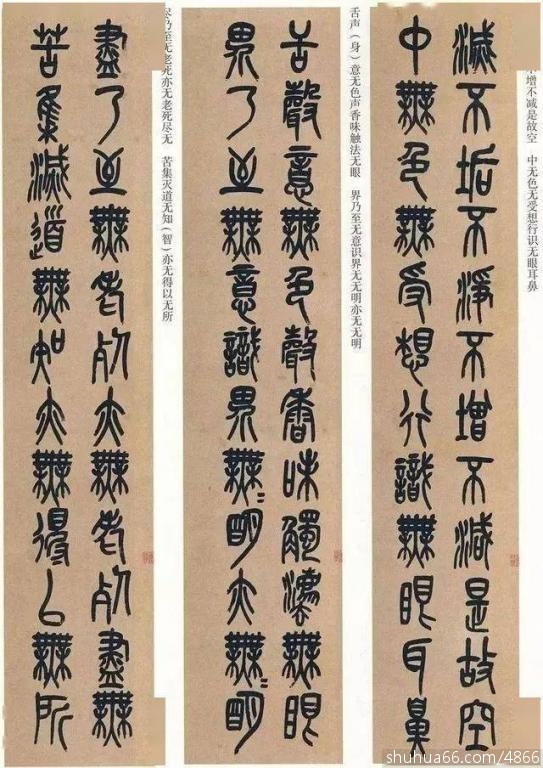 增不减是故空　中无色无受想行识无眼耳鼻
滅不垢不淨不增不減是故空
中無色無受想行識無眼耳鼻
舌声（身）意无色声香味触法无眼　界乃至无意识界无无明亦无无明
舌聲意無色聲香味觸法無眼
界乃至無意識界無〻明亦無〻明
尽乃至无老死亦无老死尽无　苦集灭道无知（智）亦无得以无所
盡乃至無老死亦無老死盡無
苦集滅道無知亦無得以無所
shuhua66.com/4866